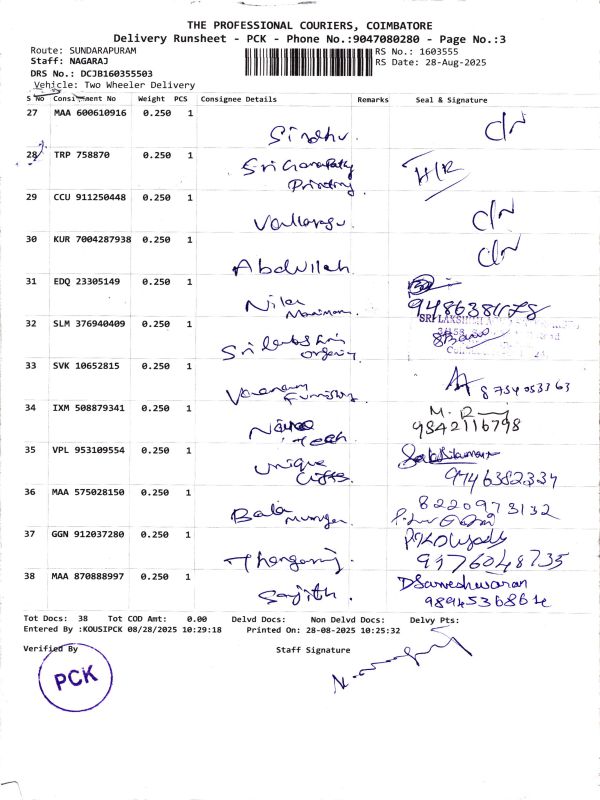 THE PROFESSIONAL COURIERS, COIMBATORE
Delivery Runsheet - PCK - Phone No.:9047080280 - Page No.:3
Route: SUNDARAPURAM
RS No.: 1603555
Staff: NAGARAJ
RS Date: 28-Aug-2025
DRS No.: DCJB160355503
Vehicle: Two Wheeler Delivery
S No Consignment No Weight PCS Consignee Details Remarks Seal & Signature
27 MAA 600610916 0.250 1
Sindhu.
28 TRP 758870 0.250 1
Sri Ganapathy
Printing
H/R
29 CCU 911250448 0.250 1
30 KUR 7004287938 0.250 1
Abdullah.
31 EDQ 23305149 0.250 1
Nila
9486381178
32 SLM 376940409 0.250 1
SRI LAKSHMI
33 SVK 10652815 0.250 1
34 IXM 508879341 0.250 1
Tech.
9842116798
35 VPL 953109554 0.250 1
Unique
Gifts.
9746382334
36 MAA 575028150 0.250 1
Bala
Murugan.
8220973132
37 GGN 912037280 0.250 1
Thangaraj.
9176048735
38 MAA 870888997 0.250 1
Sajith.
DSarveshwaran
Tot Docs: 38 Tot COD Amt: 0.00 Delvd Docs: Non Delvd Docs: Delvy Pts:
Entered By :KOUSIPCK 08/28/2025 10:29:18 Printed On: 28-08-2025 10:25:32
Verified By Staff Signature
PCK